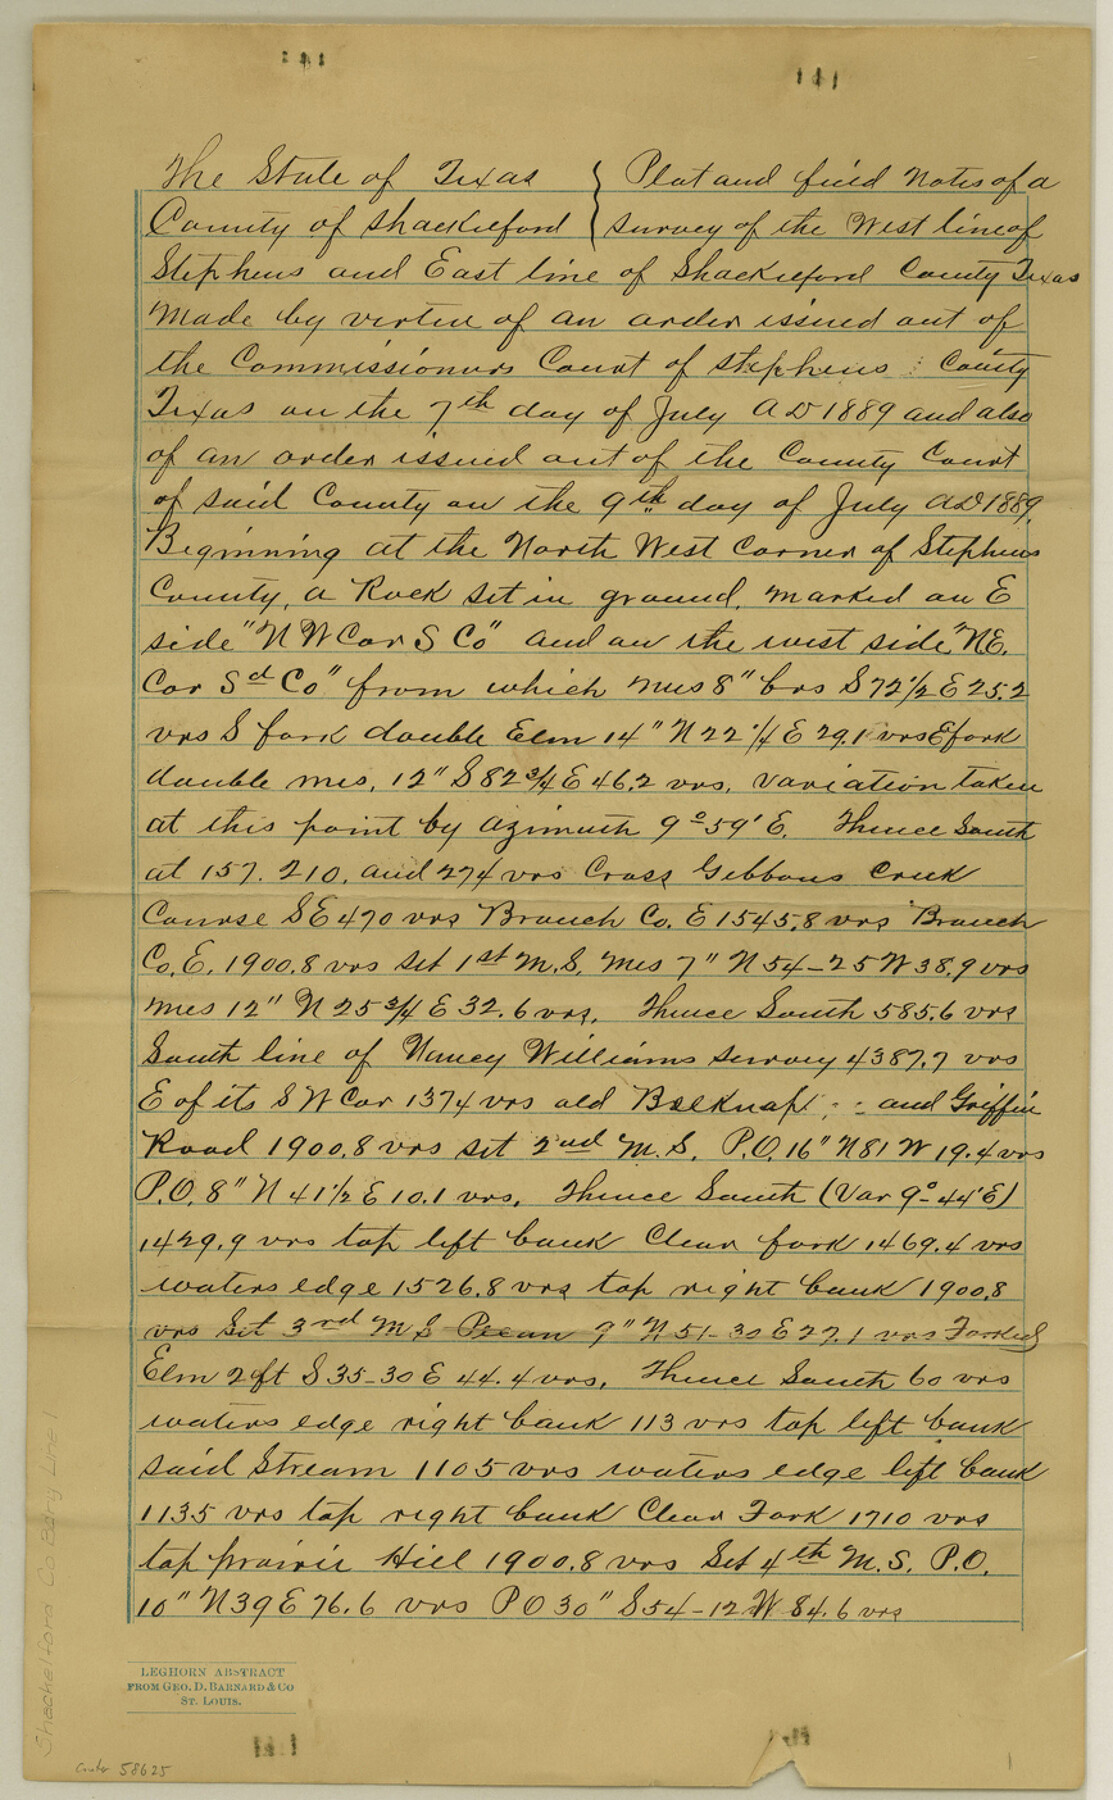 The State of Texas } Plat and field Notes of a
County of Shackleford } survey of the West line of
Stephens and East line of Shackleford County Texas
Made by virtue of an order issued out of
the Commissioners Court of Stephens County
Texas on the 7th day of July A D 1889 and also
of an order issued out of the County Court
of said County on the 9th day of July AD 1889.
Beginning at the North West Corner of Stephens
County, a Rock set in ground, marked on E
side "N W Cor S Co" and on the west side "N E.
Cor Sd Co" from which mes 8" brs S 72 1/2 E 25.2
vrs S fork double Elm 14" N 22 1/4 E 29.1 vrs E fork
double mes, 12" S 82 3/4 E 46.2 vrs, variation taken
at this point by azimuth 9° 59' E. Thence South
at 157. 210. and 274 vrs Cross Gibbons Creek
Course S E 470 vrs Branch Co. E 1545.8 vrs Branch
Co. E. 1900.8 vrs set 1st M.S. mes 7" N 54-25 W 38.9 vrs
mes 12" N 25 3/4 E 32.6 vrs. Thence South 585.6 vrs
South line of Nancy Williams survey 4387.7 vrs
E of its S W Cor 1374 vrs old Belknap and Griffin
Road 1900.8 vrs set 2nd M.S. P.O. 16" N 81 W 19.4 vrs
P.O. 8" N 41 1/2 E 10.1 vrs. Thence South (Var 9°-44' E)
1429.9 vrs top left bank Clear fork 1469.4 vrs
waters edge 1526.8 vrs top right bank 1900.8
vrs Set 3rd M S Pecan 9" N 51-30 E 27.1 vrs Forked
Elm 2 ft S 35-30 E 44.4 vrs. Thence South 60 vrs
waters edge right bank 113 vrs top left bank
said Stream 1105 vrs waters edge left bank
1135 vrs top right bank Clear Fork 1710 vrs
top prairie Hill 1900.8 vrs Set 4th M.S. P.O.
10" N 39 E 76.6 vrs P O 30" S 54-12 W 84.6 vrs
LEGHORN ABSTRACT
FROM GEO. D. BARNARD & CO
ST. LOUIS.
Shackelford Co Bdry Line 1
Counter 58625
1